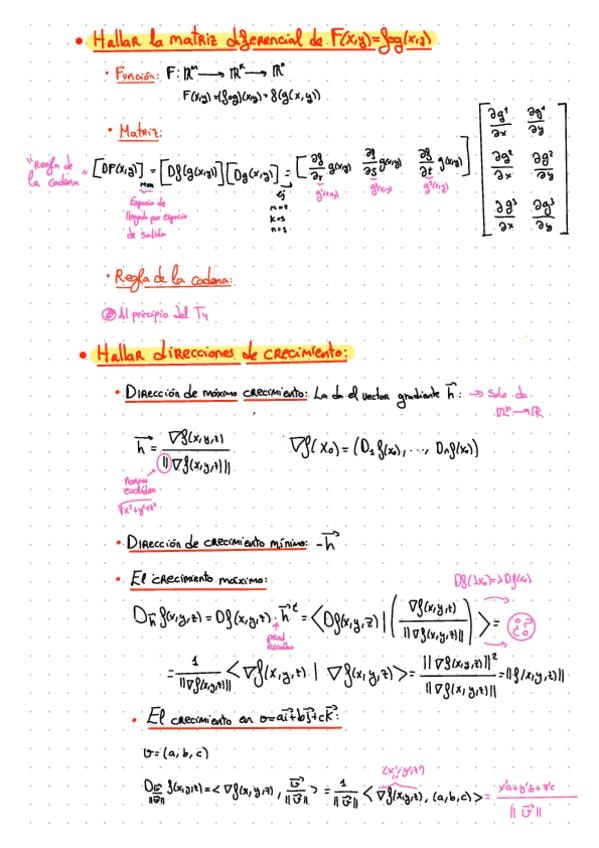 • Hallar la matriz diferencial de F(x,y)=fog(x,y)
· Función: F: ℝᵐ → ℝᵏ → ℝⁿ
F(x,y)=(fog)(x,y)=f(g(x,y))
· Matriz:
"Regla de la cadena" [DF(x,y)] = [Df(g(x,y))][Dg(x,y)] = [∂f/∂r g(x,y) ∂f/∂s g(x,y) ∂f/∂t g(x,y)] · [∂g¹/∂x ∂g¹/∂y
∂g²/∂x ∂g²/∂y
∂g³/∂x ∂g³/∂y]
g¹(x,y) g²(x,y) g³(x,y)
Espacio de llegada por espacio de salida
Ej
m=2
k=3
n=1
· Regla de la cadena:
Al principio del T4
• Hallar direcciones de crecimiento:
· Dirección de máximo crecimiento: La da el vector gradiente h⃗: → Solo de ℝⁿ → ℝ
h⃗ = ∇f(x,y,z) / ||∇f(x,y,z)||
∇f(x₀) = (D₁f(x₀), ..., Dₙf(x₀))
Norma euclídea
√x²+y²+z²
· Dirección de crecimiento mínimo: -h⃗
· El crecimiento máximo:
Df(λx₀)=λDf(x₀)
D_h⃗ f(x,y,z) = Df(x,y,z) · h⃗ᵗ = <Df(x,y,z) | (∇f(x,y,z) / ||∇f(x,y,z)||)> =
prod escalar
= 1/||∇f(x,y,z)|| <∇f(x,y,z) | ∇f(x,y,z)> = ||∇f(x,y,z)||² / ||∇f(x,y,z)|| = ||f(x,y,z)||
· El crecimiento en v=ai⃗+bj⃗+ck⃗:
v=(a,b,c)
(x',y',z')
D_v⃗/||v⃗|| f(x,y,z) = <∇f(x,y,z), v⃗/||v⃗||> = 1/||v⃗|| <∇f(x,y,z), (a,b,c)> = x'a+y'b+z'c / ||v⃗||